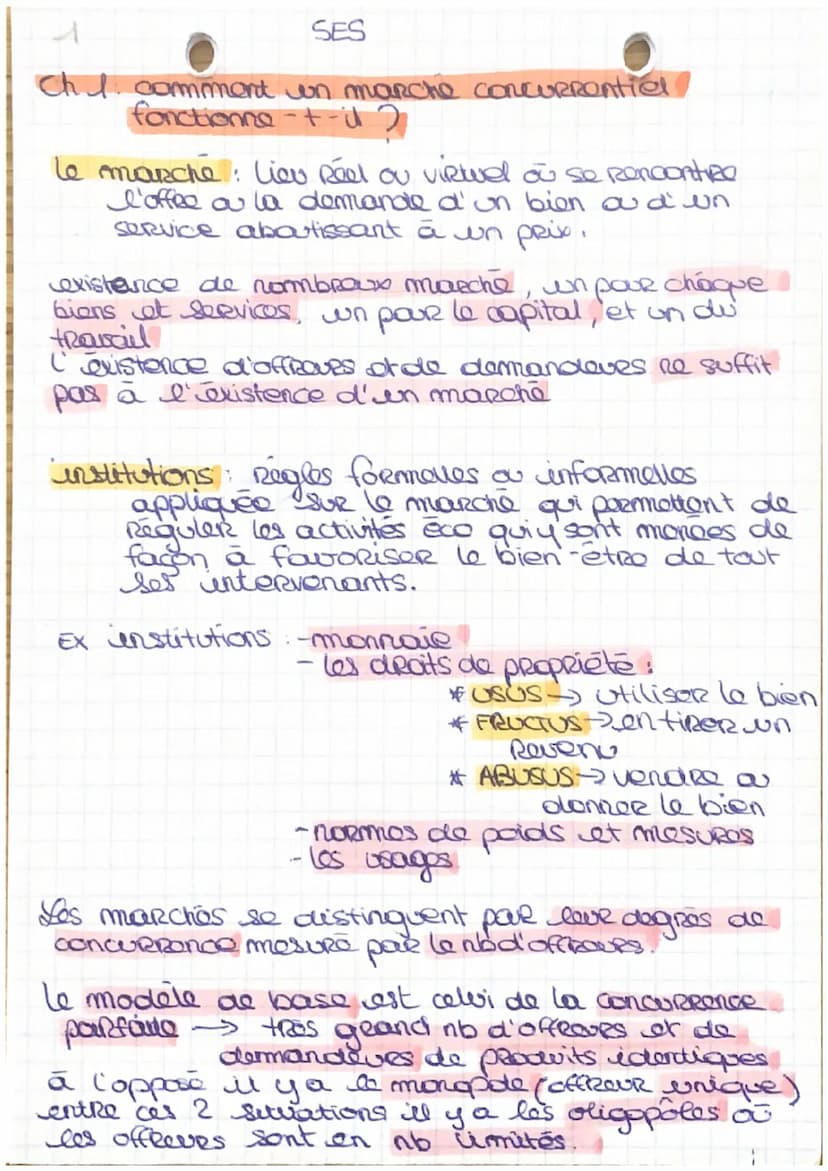 1
SES
Ch 1. comment un marché concurrentiel
fonctionne-t-il ?
le marché : lieu Réel ou virtuel où se rencontre
l'offre ou la demande d'un bien ou d'un
service aboutissant à un prix.
existence de nombreux marché, un pour chaque
biens et services, un pour le capital, et un du
travail
l'existence d'offreurs et de demandeurs ne suffit
pas à l'existence d'un marché
institutions : Règles formelles ou informelles
appliquée sur le marché qui permettent de
Réguler les activités éco qui y sont menées de
façon à favoriser le bien-être de tout
ses intervenants.
Ex institutions : - monnaie
- les droits de propriété :
* USUS → utiliser le bien
* FRUCTUS → en tirer un
Revenu
* ABUSUS → vendre ou
donner le bien
- normes de poids et mesures
- les usages
Les marchés se distinguent par leur degrés de
concurrence mesuré par le nb d'offreurs.
Le modèle de base est celui de la concurrence
parfaite → très grand nb d'offreurs et de
demandeurs de produits identiques
à l'opposé il y a le monopole (offreur unique)
entre ces 2 situations il y a les oligopôles où
les offreurs sont en nb limités.